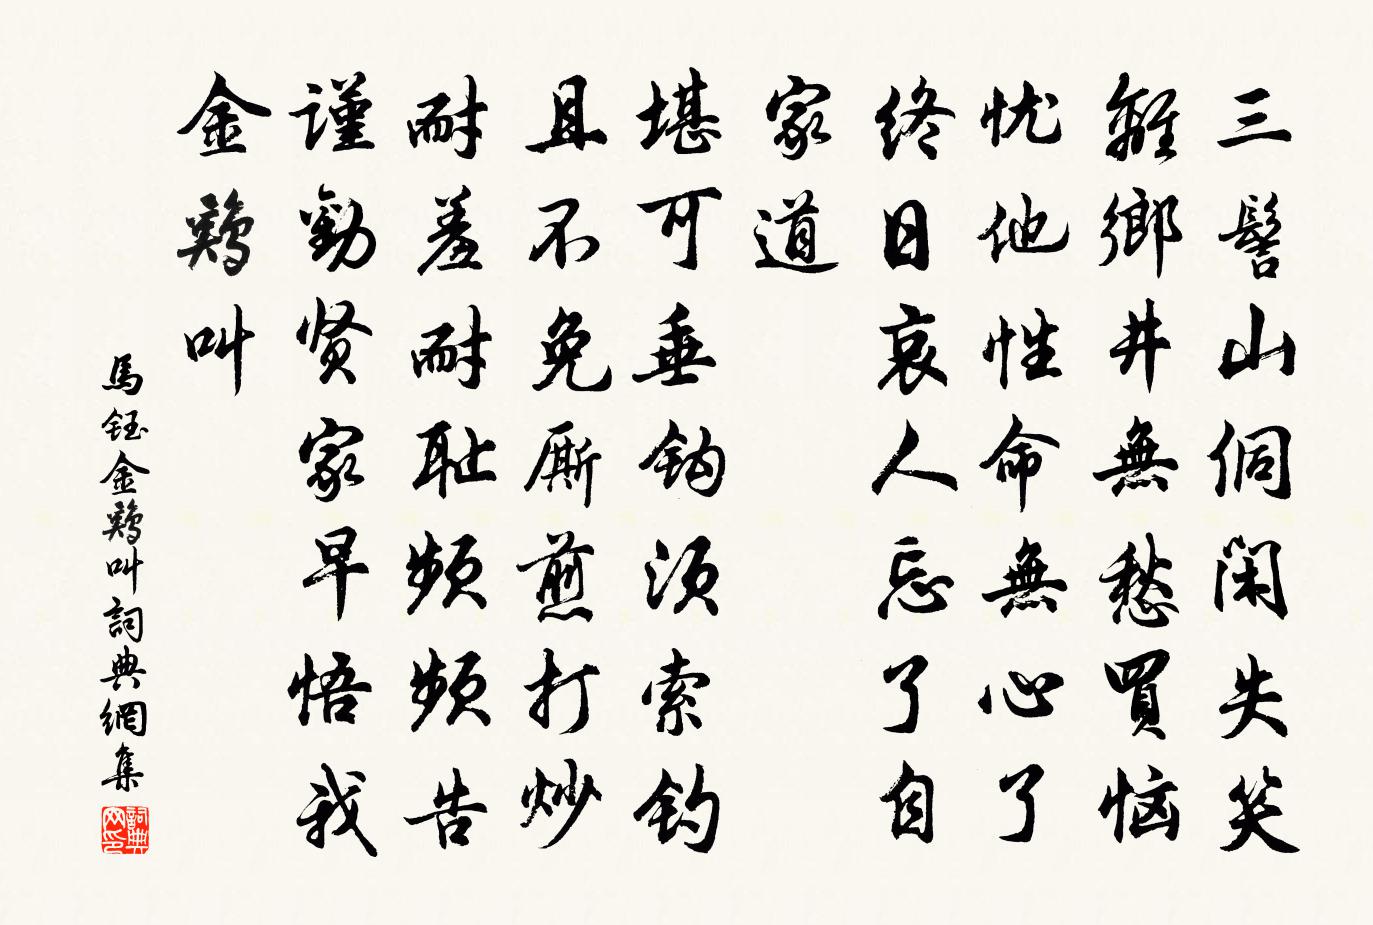 三髻山侗闲失笑
離鄉井無愁買恼
忧他性命無心了
终日哀人忘了自
家道
堪可垂钩须索钓
且不免厮煎打炒
耐羞耐耻频频告
谨勸贤家早悟我
金鷄叫
馬鈺金鷄叫詞典網集
詞典网印